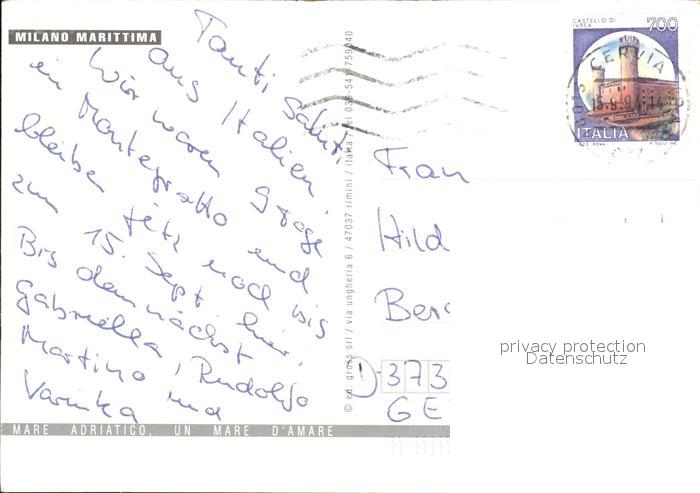 MILANO MARITTIMA
Tanti Saluti
aus Italien.
Wir waren 9 Tage
in Montegrotto und
bleiben jetzt noch bis
zum 15. Sept. hier.
Bis demnächst
Gabriella, Rudolfo
Martino und
Varinka
MARE ADRIATICO, UN MARE D'AMARE
© ed. gross srl / via ungheria 6 / 47037 rimini / italia / tel
CASTELLO DI
IVREA
700
CERVIA
ITALIA
I.P.Z.S. ROMA
Frau
Hild
Ber
D-373
GE
privacy protection
Datenschutz